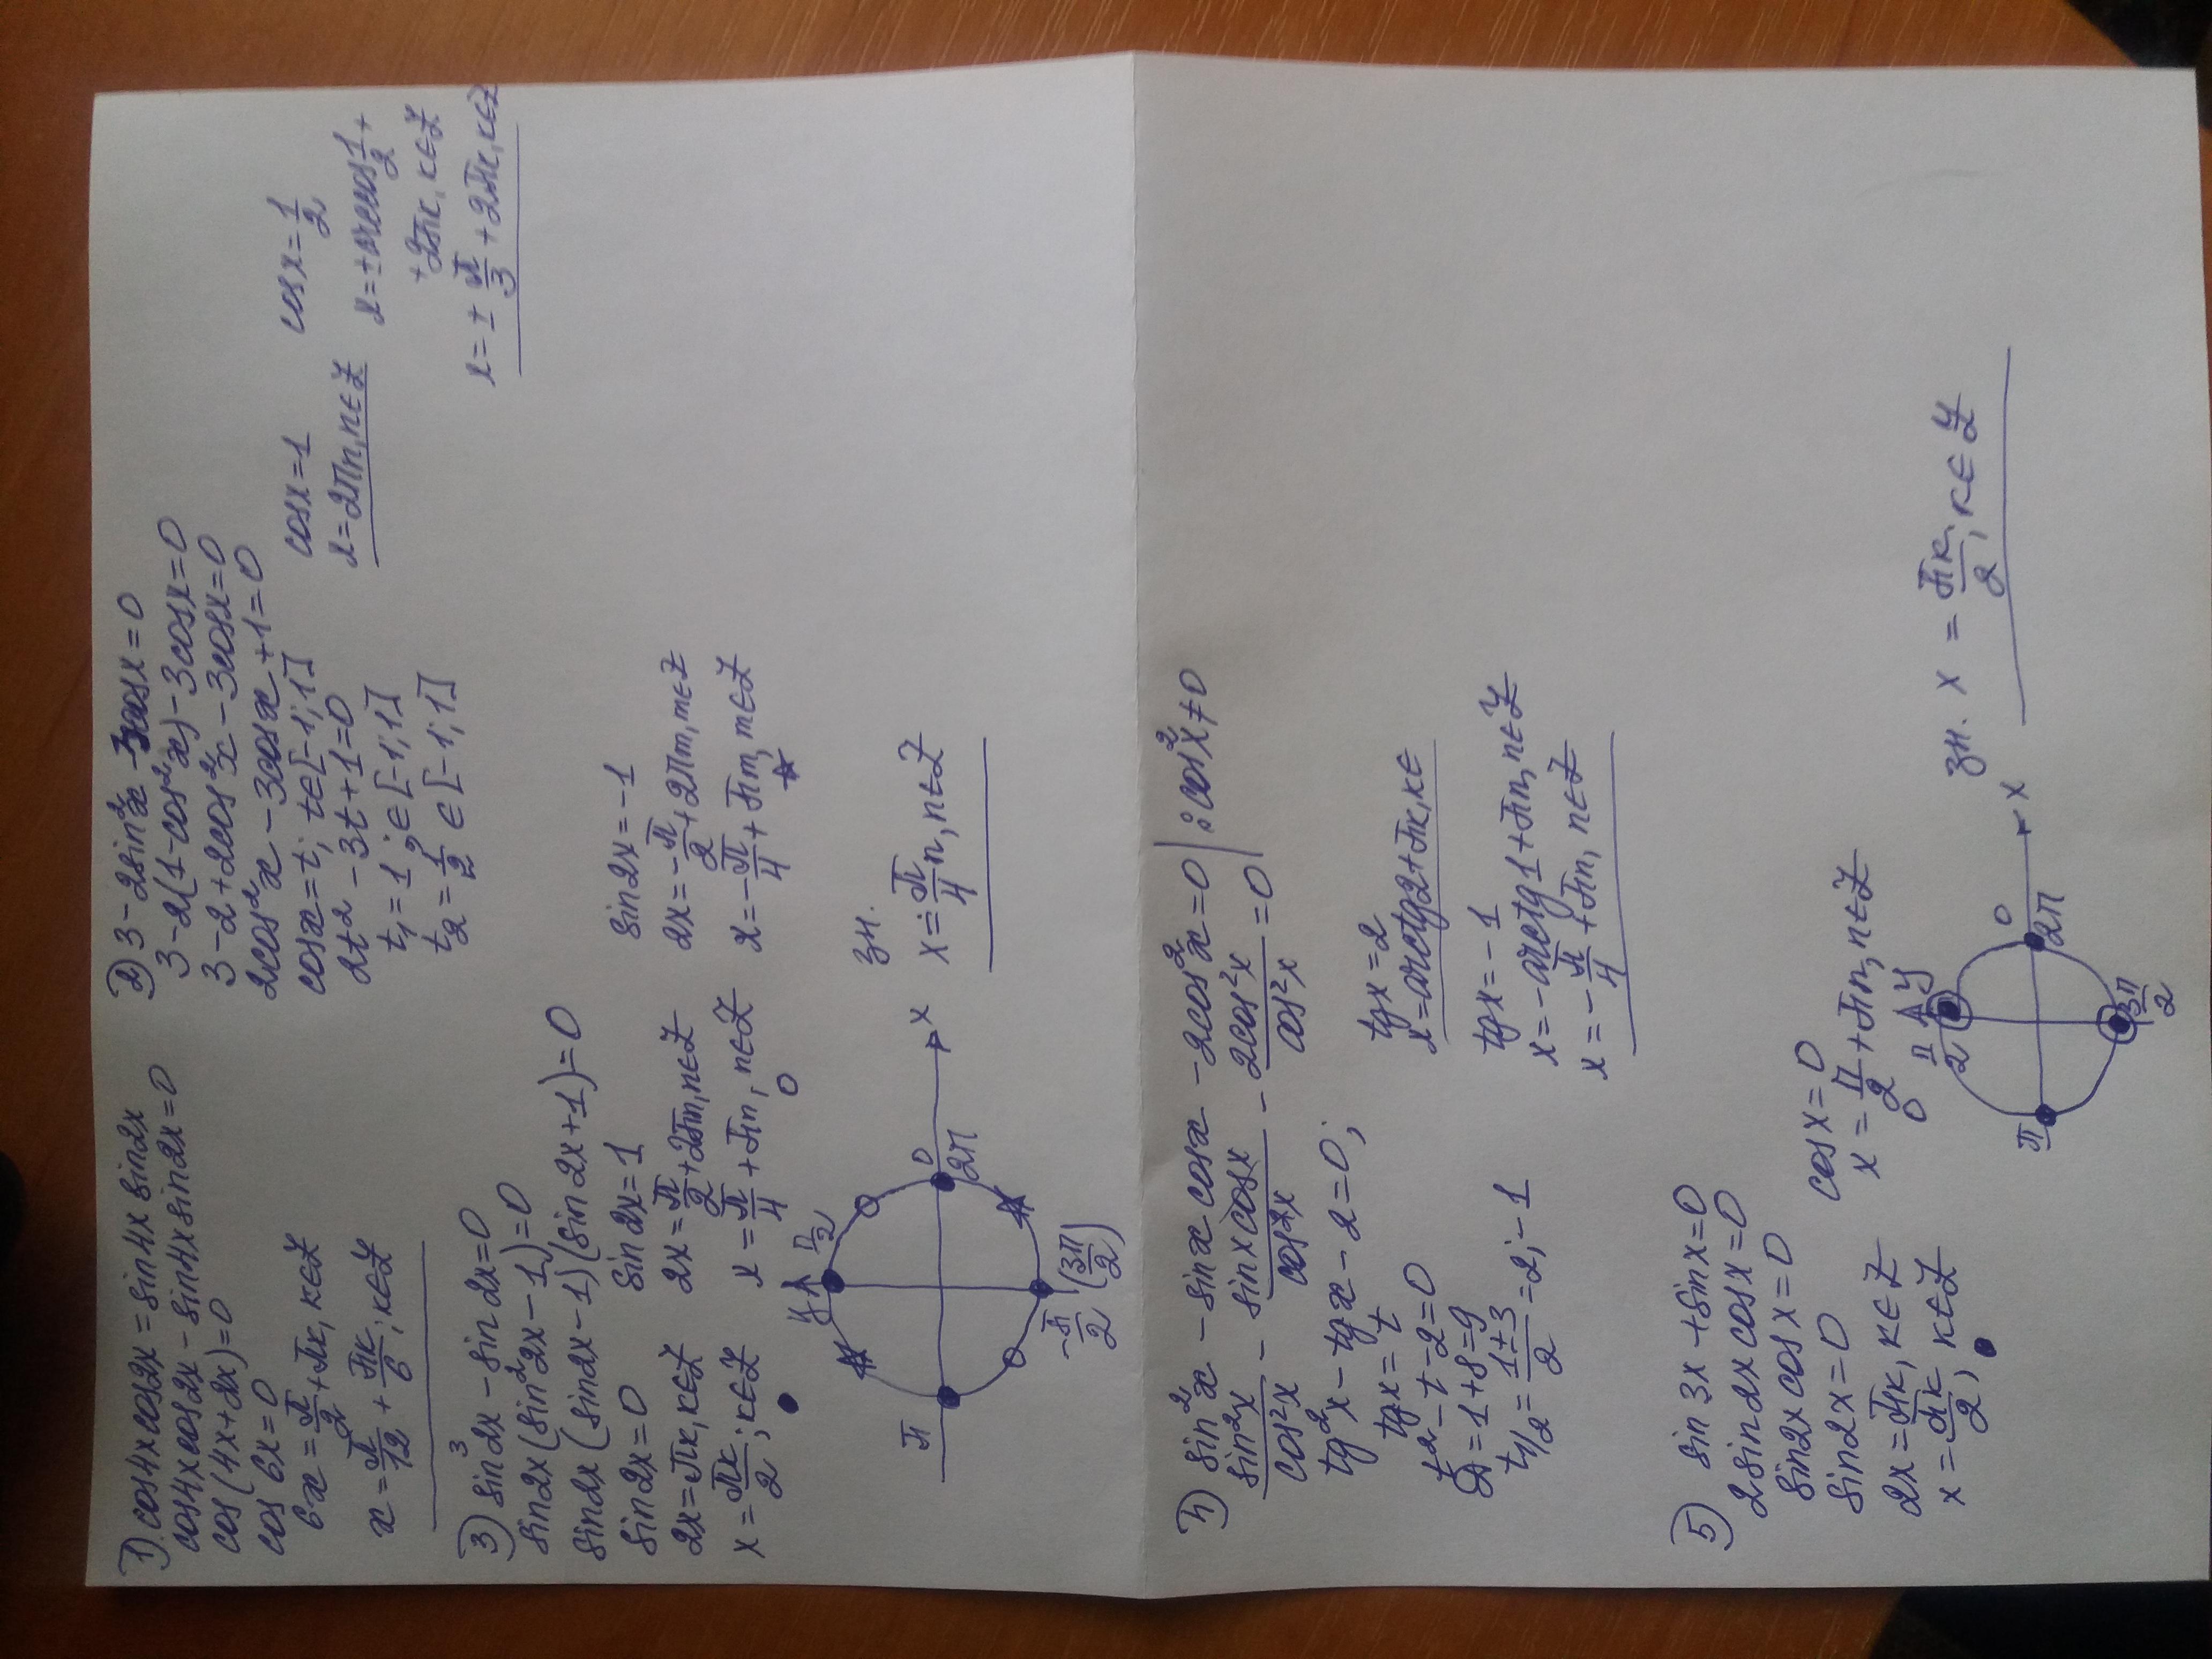 1). cos4x cos2x = sin4x sin2x
cos4x cos2x - sin4x sin2x = 0
cos(4x+2x)=0
cos 6x = 0
6x = π/2 + πk, k∈Z
x = π/12 + πk/6; k∈Z
2) 3 - 2sin²x - 3cosx = 0
3 - 2(1-cos²x) - 3cosx = 0
3 - 2 + 2cos²x - 3cosx = 0
2cos²x - 3cosx + 1 = 0
cosx = t; t∈[-1; 1]
2t² - 3t + 1 = 0
t₁ = 1; ∈[-1; 1]
t₂ = 1/2 ∈[-1; 1]
cosx = 1
x = 2πn, n∈Z
cosx = 1/2
x = ± arccos 1/2 +
+ 2πk, k∈Z
x = ± π/3 + 2πk, k∈Z
3) sin³2x - sin2x = 0
sin2x(sin²2x - 1) = 0
sin2x(sin2x - 1)(sin2x + 1) = 0
sin2x = 0
2x = πk, k∈Z
x = πk/2; k∈Z
sin2x = 1
2x = π/2 + 2πn, n∈Z
x = π/4 + πn, n∈Z
sin2x = -1
2x = -π/2 + 2πm, m∈Z
x = -π/4 + πm, m∈Z
y
π/2
π
0
2π
x
-π/2 (3π/2)
зн.
x = π/4 n, n∈Z
4) sin²x - sinx cosx - 2cos²x = 0 | : cos²x ≠ 0
sin²x/cos²x - sinx cosx/cos²x - 2cos²x/cos²x = 0
tg²x - tgx - 2 = 0;
tgx = t
t² - t - 2 = 0
D = 1 + 8 = 9
t₁/₂ = (1±3)/2 = 2; -1
tgx = 2
x = arctg2 + πk, k∈
tgx = -1
x = -arctg1 + πn, n∈Z
x = -π/4 + πn, n∈Z
5) sin3x + sinx = 0
2sin2x cosx = 0
sin2x cosx = 0
sin2x = 0
2x = πk, k∈Z
x = πk/2, k∈Z
cosx = 0
x = π/2 + πn, n∈Z
π/2
y
π
0
2π
x
3π/2
зн. x = πk/2, k∈Z